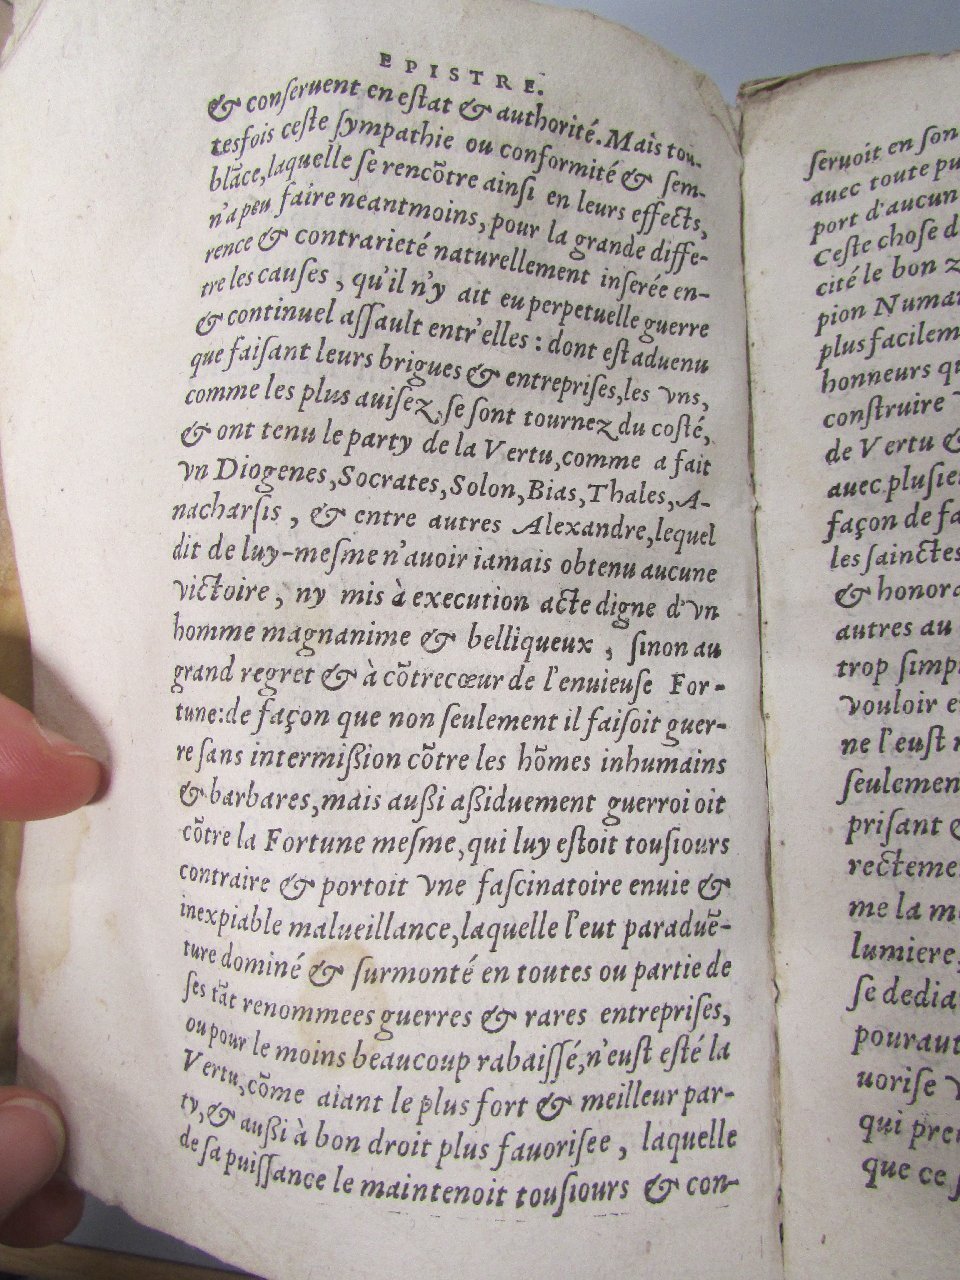 EPISTRE.
& conſeruent en eſtat & authorité. Mais tou-
tesfois ceſte ſympathie ou conformité & ſem-
blãce, laquelle ſe rencõtre ainſi en leurs effects,
n'a peu faire neantmoins, pour la grande diffe-
rence & contrarieté naturellement inſerée en-
tre les cauſes, qu'il n'y ait eu perpetuelle guerre
& continuel aſſault entr'elles : dont eſt aduenu
que faiſant leurs brigues & entrepriſes, les vns,
comme les plus auiſez, ſe ſont tournez du coſté,
& ont tenu le party de la Vertu, comme a fait
vn Diogenes, Socrates, Solon, Bias, Thales, A-
nacharſis, & entre autres Alexandre, lequel
dit de luy-meſme n'auoir iamais obtenu aucune
victoire, ny mis à execution acte digne d'vn
homme magnanime & belliqueux, ſinon au
grand regret & à cõtrecœur de l'enuieuſe For-
tune: de façon que non ſeulement il faiſoit guer-
re ſans intermißion cõtre les hõmes inhumains
& barbares, mais außi aßiduement guerroi oit
cõtre la Fortune meſme, qui luy eſtoit touſiours
contraire & portoit vne faſcinatoire enuie &
inexpiable malueillance, laquelle l'eut paraduẽ-
ture dominé & ſurmonté en toutes ou partie de
ſes tãt renommees guerres & rares entrepriſes,
ou pour le moins beaucoup rabaiſſé, n'euſt eſté la
Vertu, cõme aiant le plus fort & meilleur par-
ty, & außi à bon droit plus fauoriſee, laquelle
de ſa puiſſance le maintenoit touſiours & con-
ſeruoit en ſon
auec toute pu
port d'aucun
Ceſte choſe d
cité le bon z
pion Numa
plus facilem
honneurs qu
conſtruire v
de Vertu &
avec pluſie
façon de fa
les ſainctes
& honora
autres au
trop ſimp
vouloir e
ne l'euſt
ſeulemen
priſant &
recteme
me la m
lumiere,
ſe dedia
pouraut
uoriſe v
qui pre
que ce ſ